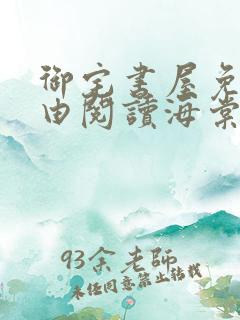 御宅書屋免
由閱讀海棠
93余老師
未经同意禁止转载